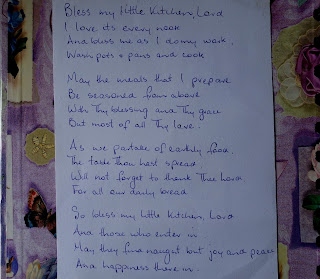 Bless my little Kitchen, Lord
I love its every nook
And bless me as I do my work,
Wash pots & pans and cook
May the meals that I prepare
Be seasoned from above
With Thy blessing and Thy grace
But most of all Thy love.
As we partake of earthly food,
The table Thou hast spread
Will not forget to thank Thee Lord
For all our daily bread
So bless my little Kitchen, Lord
And those who enter in
May they find nought but joy and peace
And happiness there in